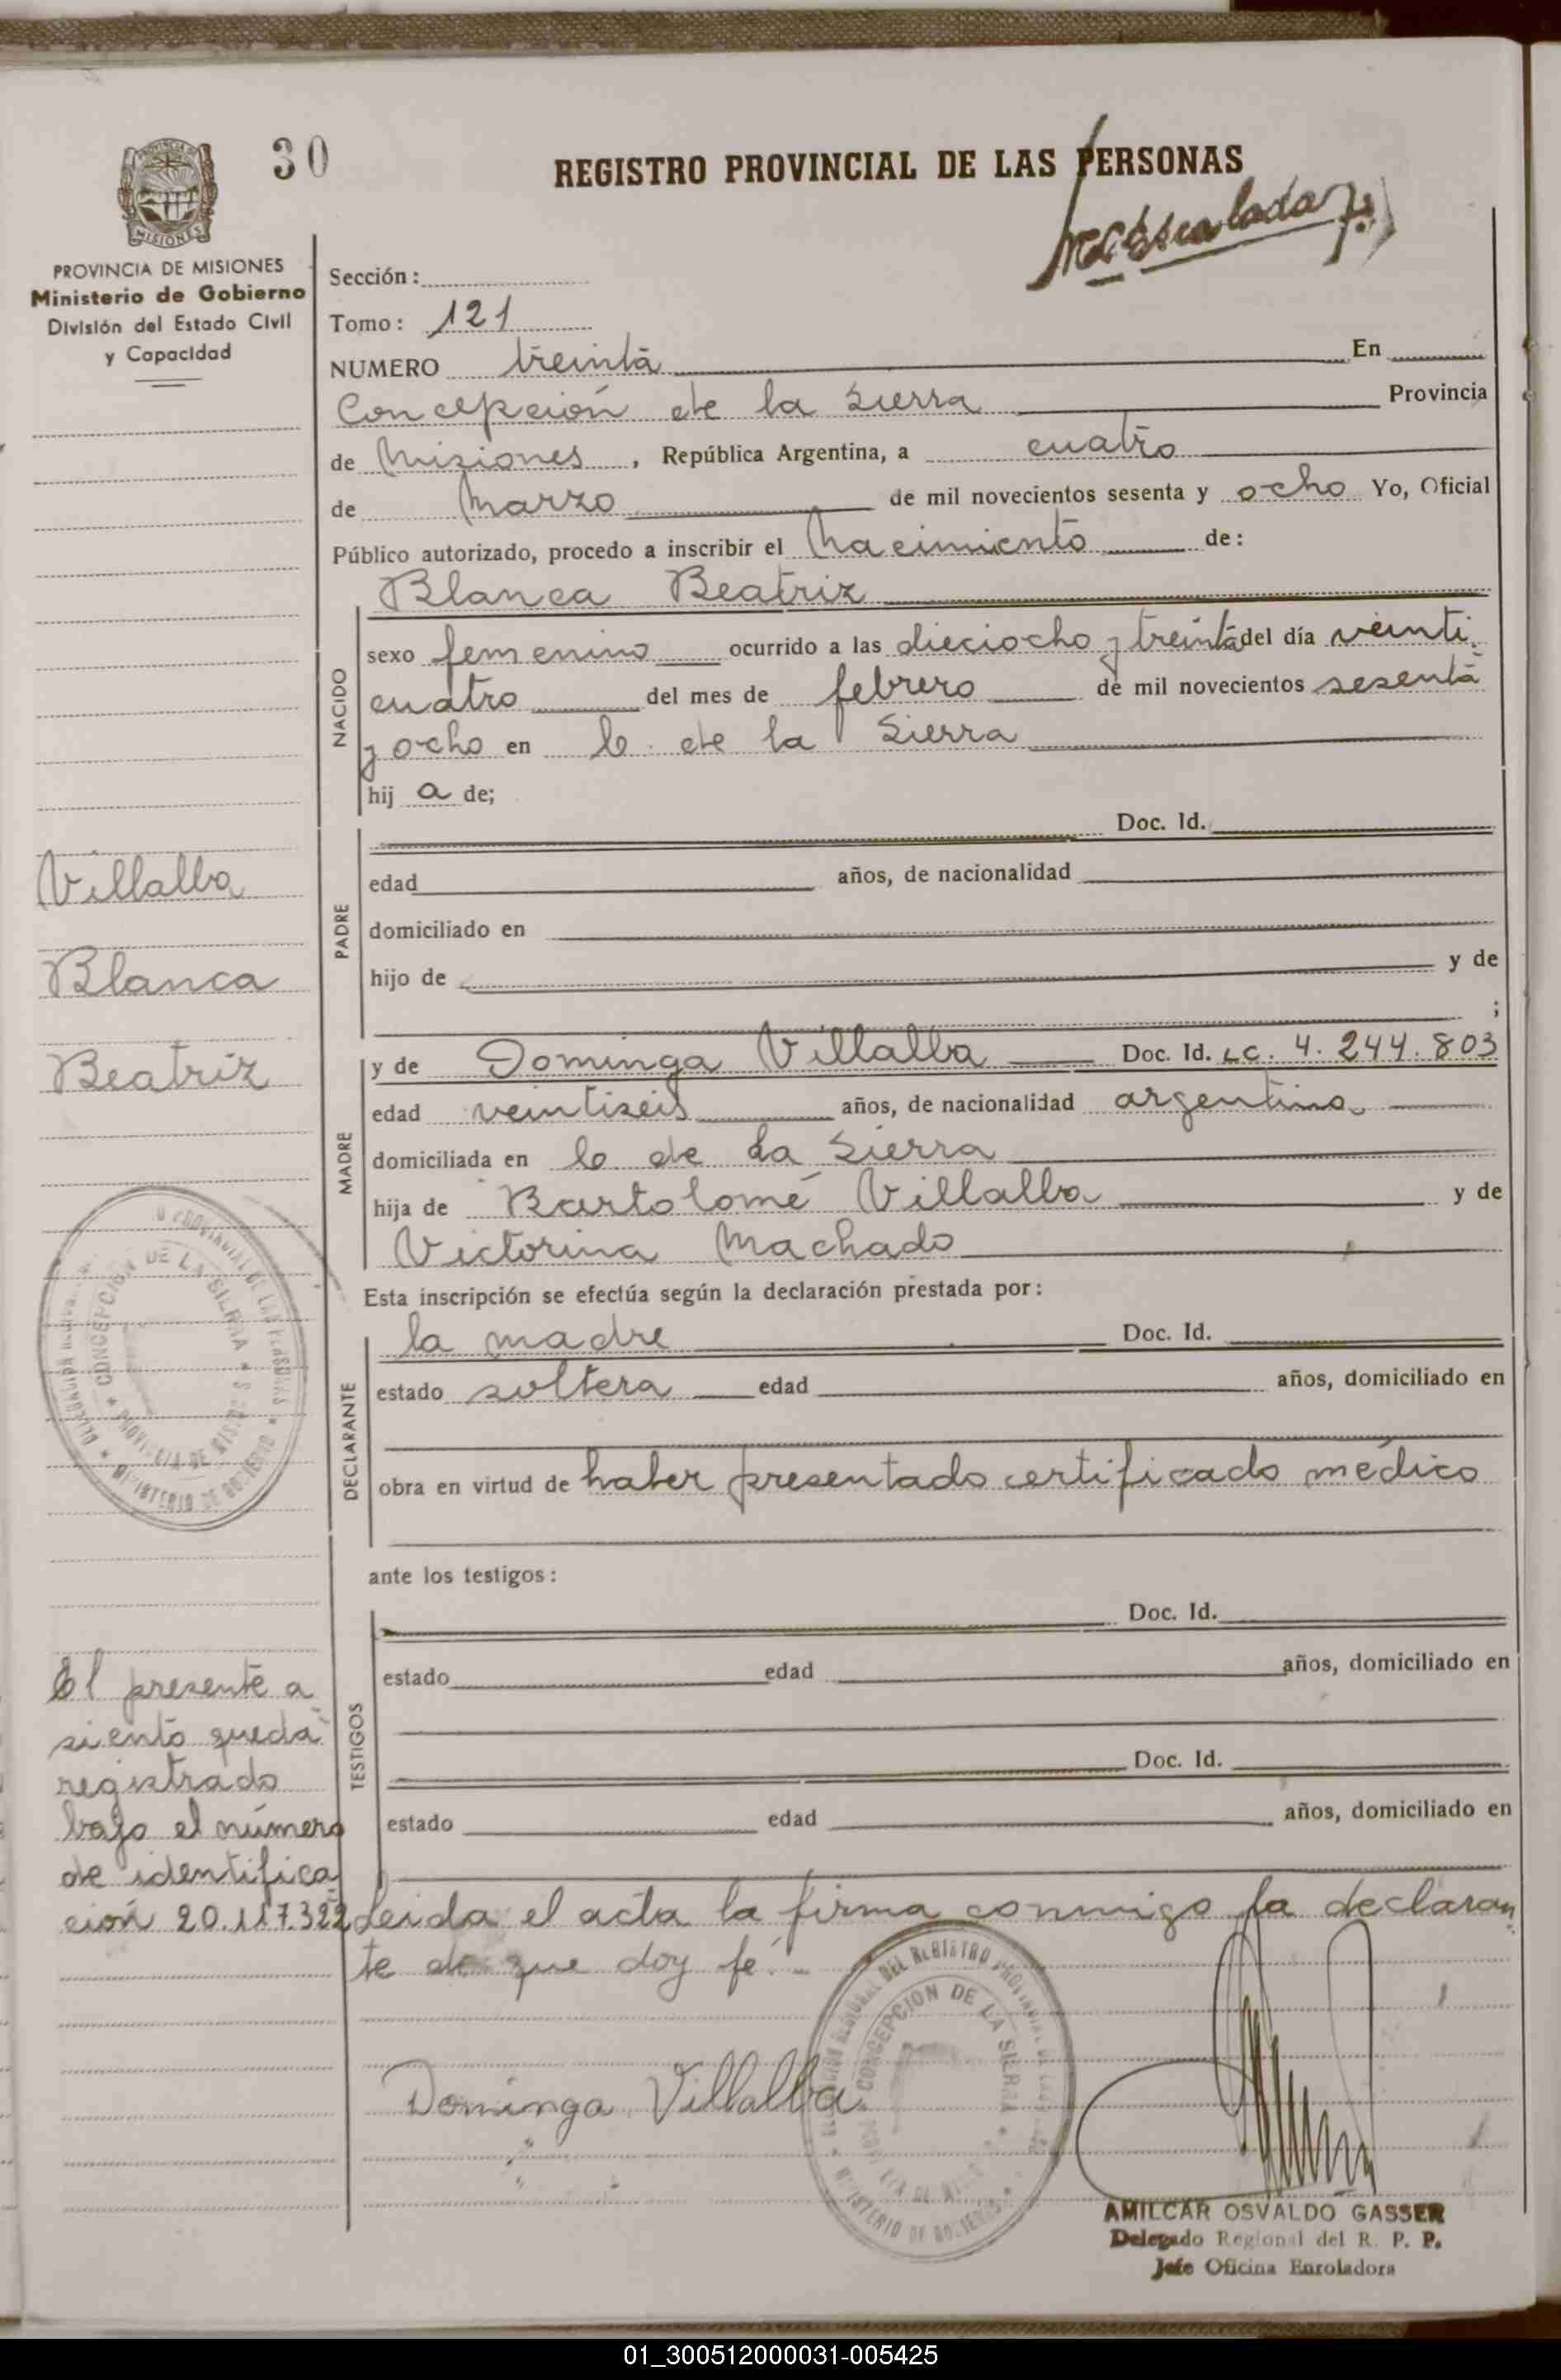 30
REGISTRO PROVINCIAL DE LAS PERSONAS
MISIONES
PROVINCIA DE MISIONES
Ministerio de Gobierno
División del Estado Civil
y Capacidad
Sección:
Tomo: 121
NUMERO treinta En
Concepción de la Sierra Provincia
de Misiones, República Argentina, a cuatro
de Marzo de mil novecientos sesenta y ocho Yo, Oficial
Público autorizado, procedo a inscribir el Nacimiento de:
Blanca Beatriz
NACIDO
sexo femenino ocurrido a las dieciocho y treinta del día veinti
cuatro del mes de febrero de mil novecientos sesenta
y ocho en C. de la Sierra
hij a de;
Doc. Id.
PADRE
edad años, de nacionalidad
domiciliado en
hijo de y de
;
Villalba
Blanca
Beatriz
MADRE
y de Dominga Villalba Doc. Id. LC. 4.244.803
edad veintiseis años, de nacionalidad argentina
domiciliada en C de La Sierra
hija de Bartolomé Villalba y de
Victorina Machado
Esta inscripción se efectúa según la declaración prestada por:
DECLARANTE
la madre Doc. Id.
estado soltera edad años, domiciliado en
obra en virtud de haber presentado certificado médico
CONCEPCION DE LA SIERRA
PROVINCIA DE MISIONES
MINISTERIO DE GOBIERNO
ante los testigos:
TESTIGOS
Doc. Id.
estado edad años, domiciliado en
Doc. Id.
estado edad años, domiciliado en
El presente a
siento queda
registrado
bajo el número
de identifica
ción 20.117.322
Leida el acta la firma conmigo la declaran
te de que doy fé.-
Dominga Villalba
DELEGACION REGIONAL DEL REGISTRO PROVINCIAL DE LAS
CONCEPCION DE LA SIERRA
MINISTERIO DE GOBIERNO
AMILCAR OSVALDO GASSER
Delegado Regional del R. P. P.
Jefe Oficina Enroladora
01_300512000031-005425